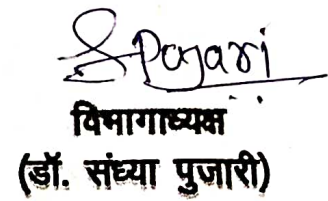 SPojari
विभागाध्यक्ष
(डॉ. संध्या पुजारी)